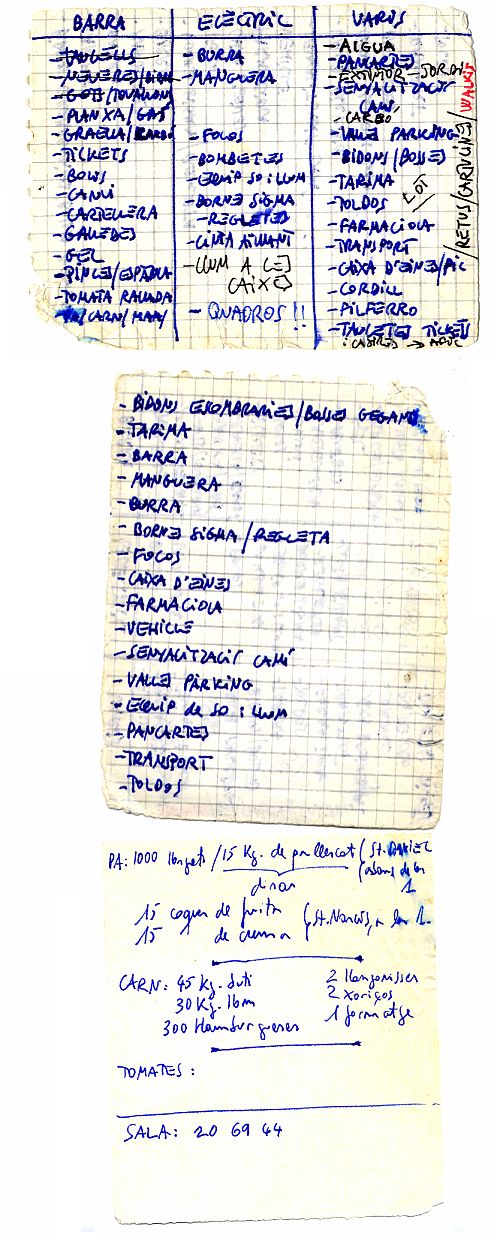 BARRA
- TAULELLS
- NEVERES/
- GOTS/
- PLANXA/GAS
- GRAELLA/
- TICKETS
- BOLIS
- CANVI
- CARTELLERA
- GALLEDES
- GEL
- PINCES/ESPATULA
- TOMATA RALLADA
CARN/
ELÈCTRIC
- BURRA
- MANGUERA
- FOCOS
- BOMBETES
- EQUIP SO i LLUM
- BORNES SIGMA
- REGLETES
- CINTA AILLANT
- LLUM A LES
CAIXES
- QUADROS!!
VARIS
- AIGUA
- PANCARTES
- EXTINTOR - JORDI
- SENYALITZACIÓ
CAMÍ
- CARBÓ
- VALLES PARKING
- BIDONS/BOSSES
- TARIMA
- TOLDOS
- FARMACIOLA
- TRANSPORT
- CAIXA D'EINES/PIC
- CORDILL
- FILFERRO
- TAULETES TICKETS
i CADIRES →
/RETUS/CARTULINES/WALKIS
- BIDONS ESCOMBRARIES/BOSSES GEGANTS
- TARIMA
- BARRA
- MANGUERA
- BURRA
- BORNES SIGMA/REGLETA
- FOCOS
- CAIXA D'EINES
- FARMACIOLA
- VEHICLE
- SENYALITZACIÓ CAMÍ
- VALLES PARKING
- EQUIP DE SO i LLUM
- PANCARTES
- TRANSPORT
- TOLDOS
PA: 1000 llonguets/15 Kg. de pa llescat (St. DANIEL
abans de les
1
dinar
15 coques de fruita (St. Narcís, a les 1.
15 de crema
CARN: 45 Kg. 2 llonganisses
30 Kg. llom 2 xoriços
300 Hamburgueses 1 formatge
TOMATES:
SALA: 20 69 44